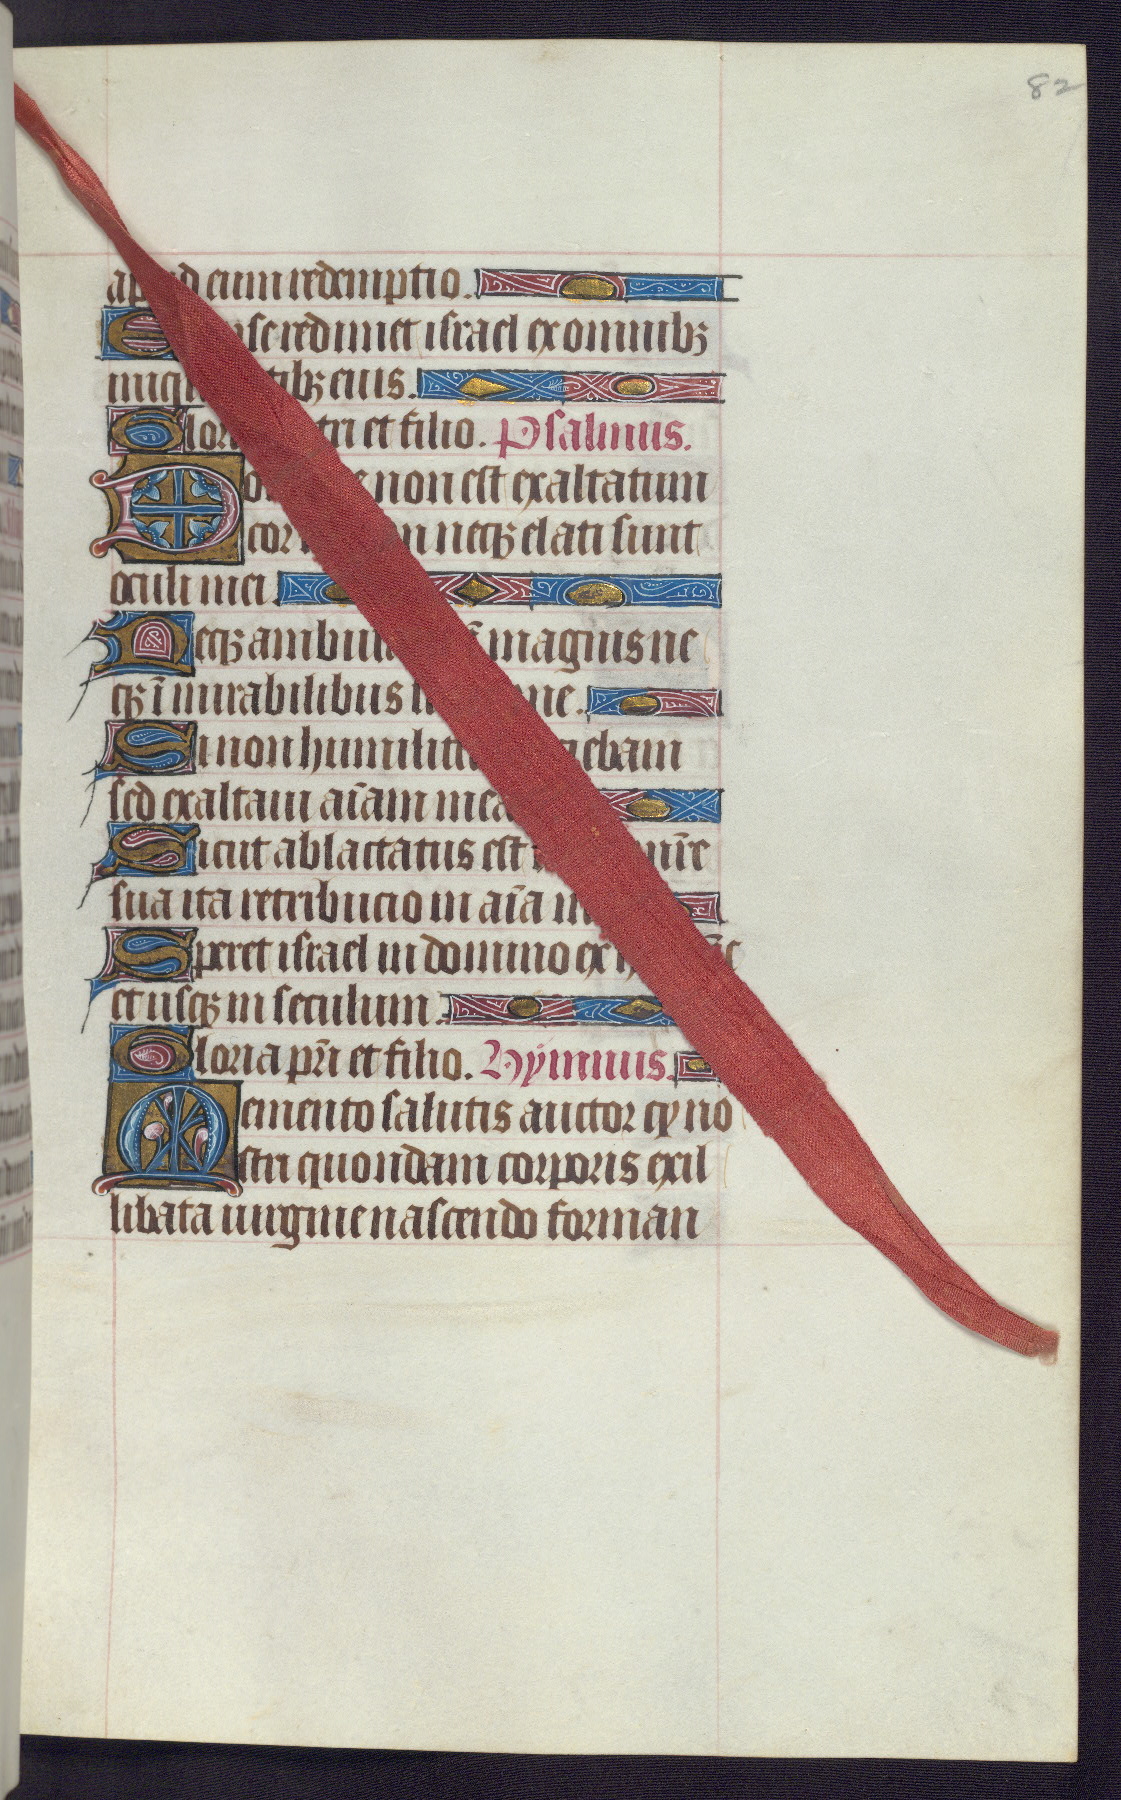 82
eum redemptio.
se redimet israel ex omnibꝫ
eius.
et filio. Psalmus.
non est exaltatum
neqꝫ elati sunt
oculi mei.
Neqꝫ magnis ne
qꝫ ī mirabilibus
Si non
sed exaltaui aīam
Sicut ablactatus est
sua ita retribucio in aīa
Speret israel in domino ex
et usqꝫ in seculum.
Gloria pr̄i et filio. Hymnus.
Memento salutis auctor qꝫ no
stri quondam corporis exil
libata uirgine nascendo forman